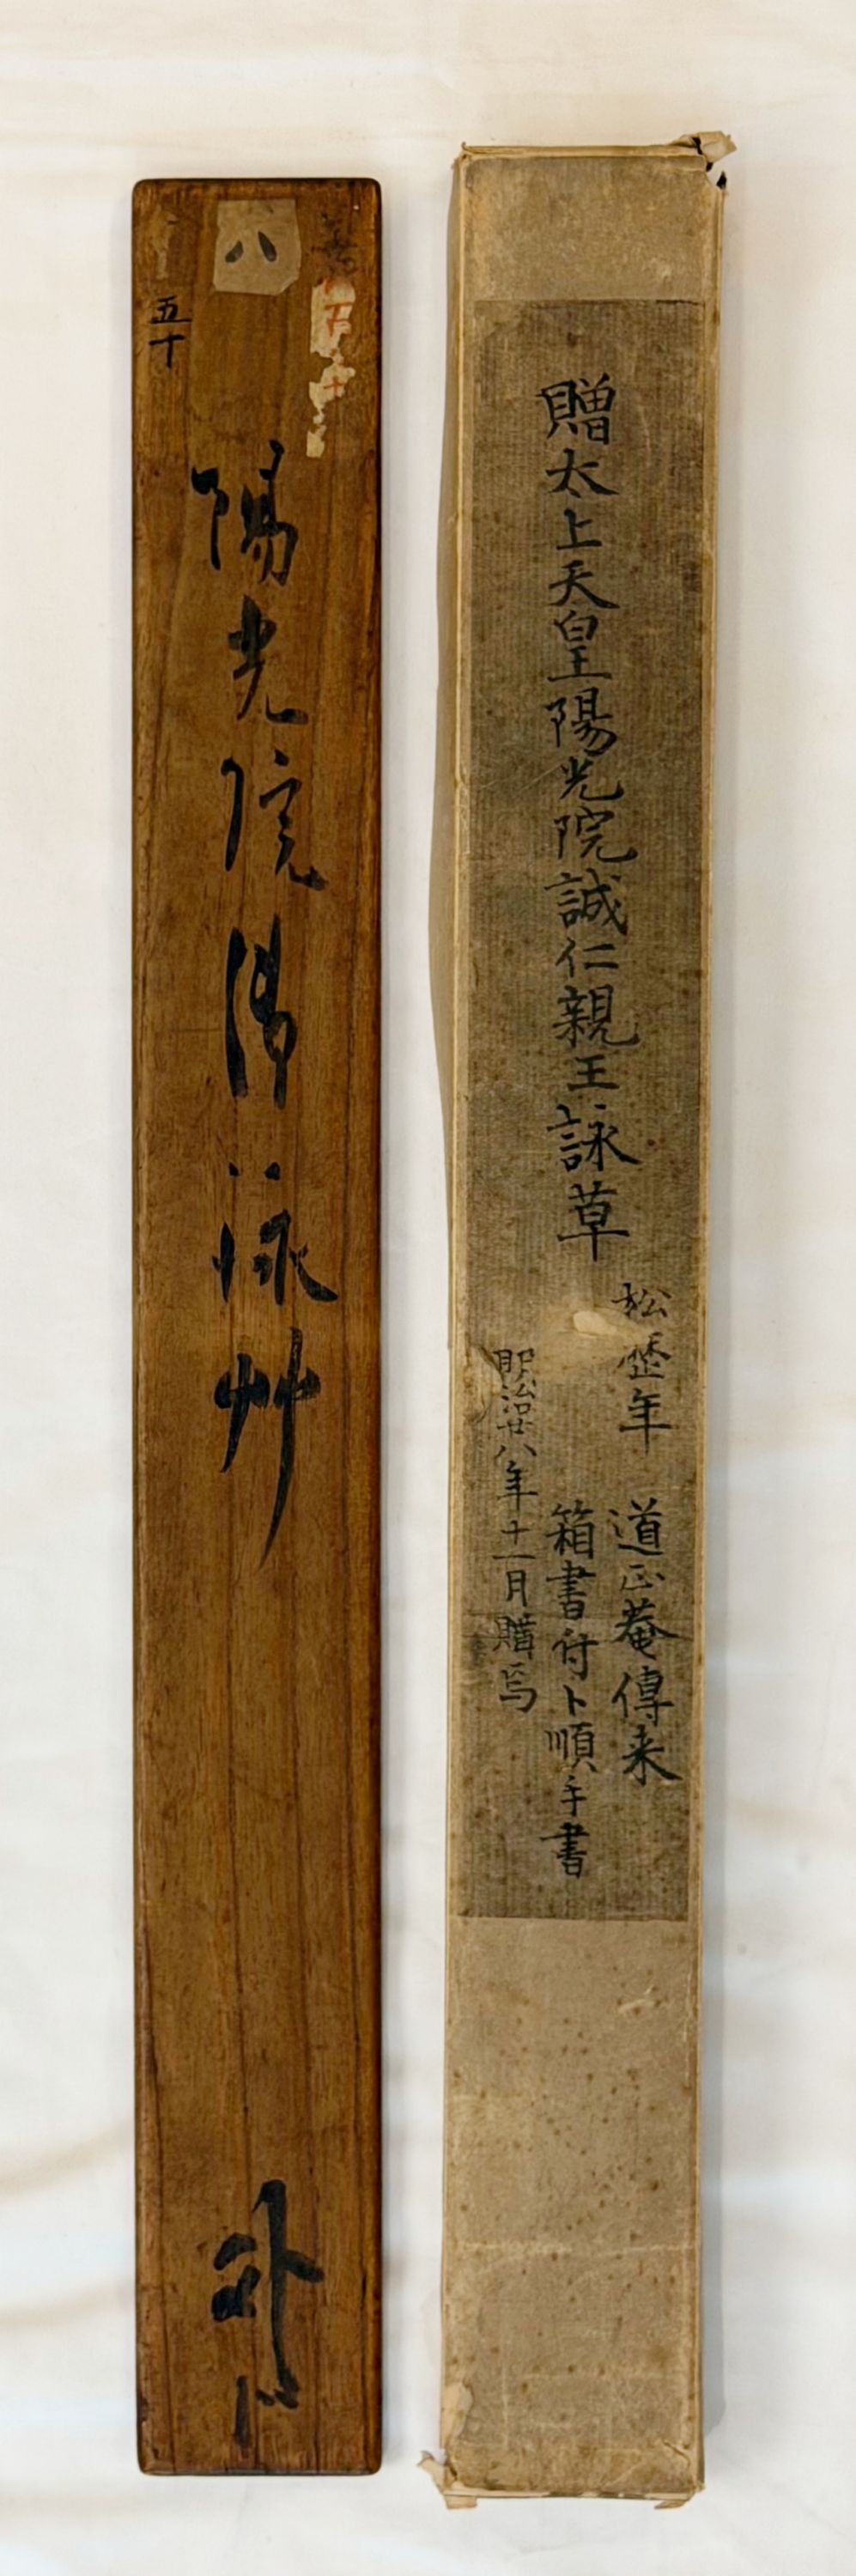 贈太上天皇陽光院誠仁親王詠草
松〓年
道正菴傳来
箱書付卜順手書
明治廿八年十一月購焉
八
五十
陽光院御詠艸